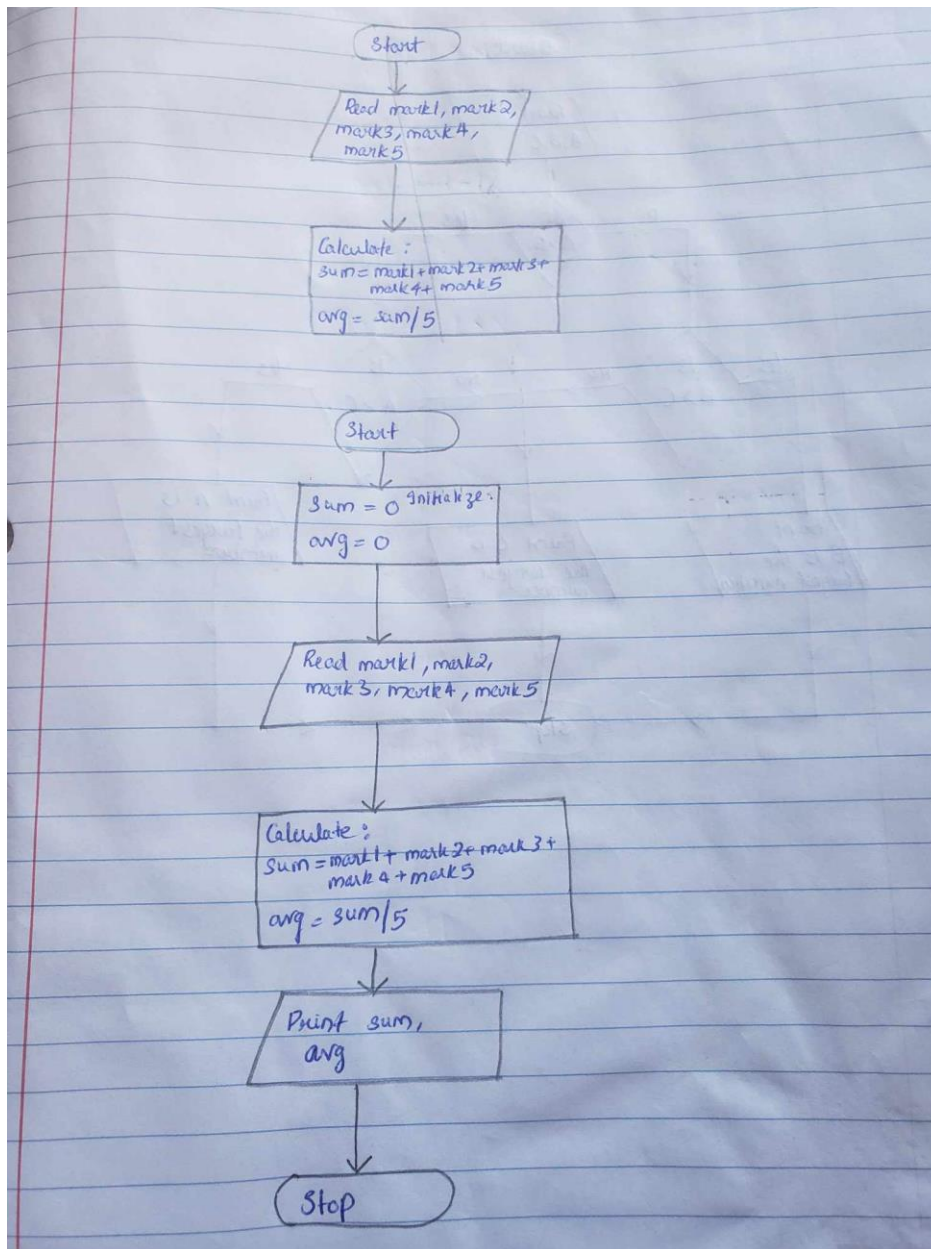 Start
Read mark1, mark2,
mark3, mark4,
mark5
Calculate :
sum = mark1+mark2+mark3+
mark4+ mark5
avg = sum/5
Start
Initialize:
sum = 0
avg = 0
Read mark1, mark2,
mark3, mark4, mark5
Calculate :
sum = mark1+ mark2+ mark3+
mark4+mark5
avg = sum/5
Print sum,
avg
Stop